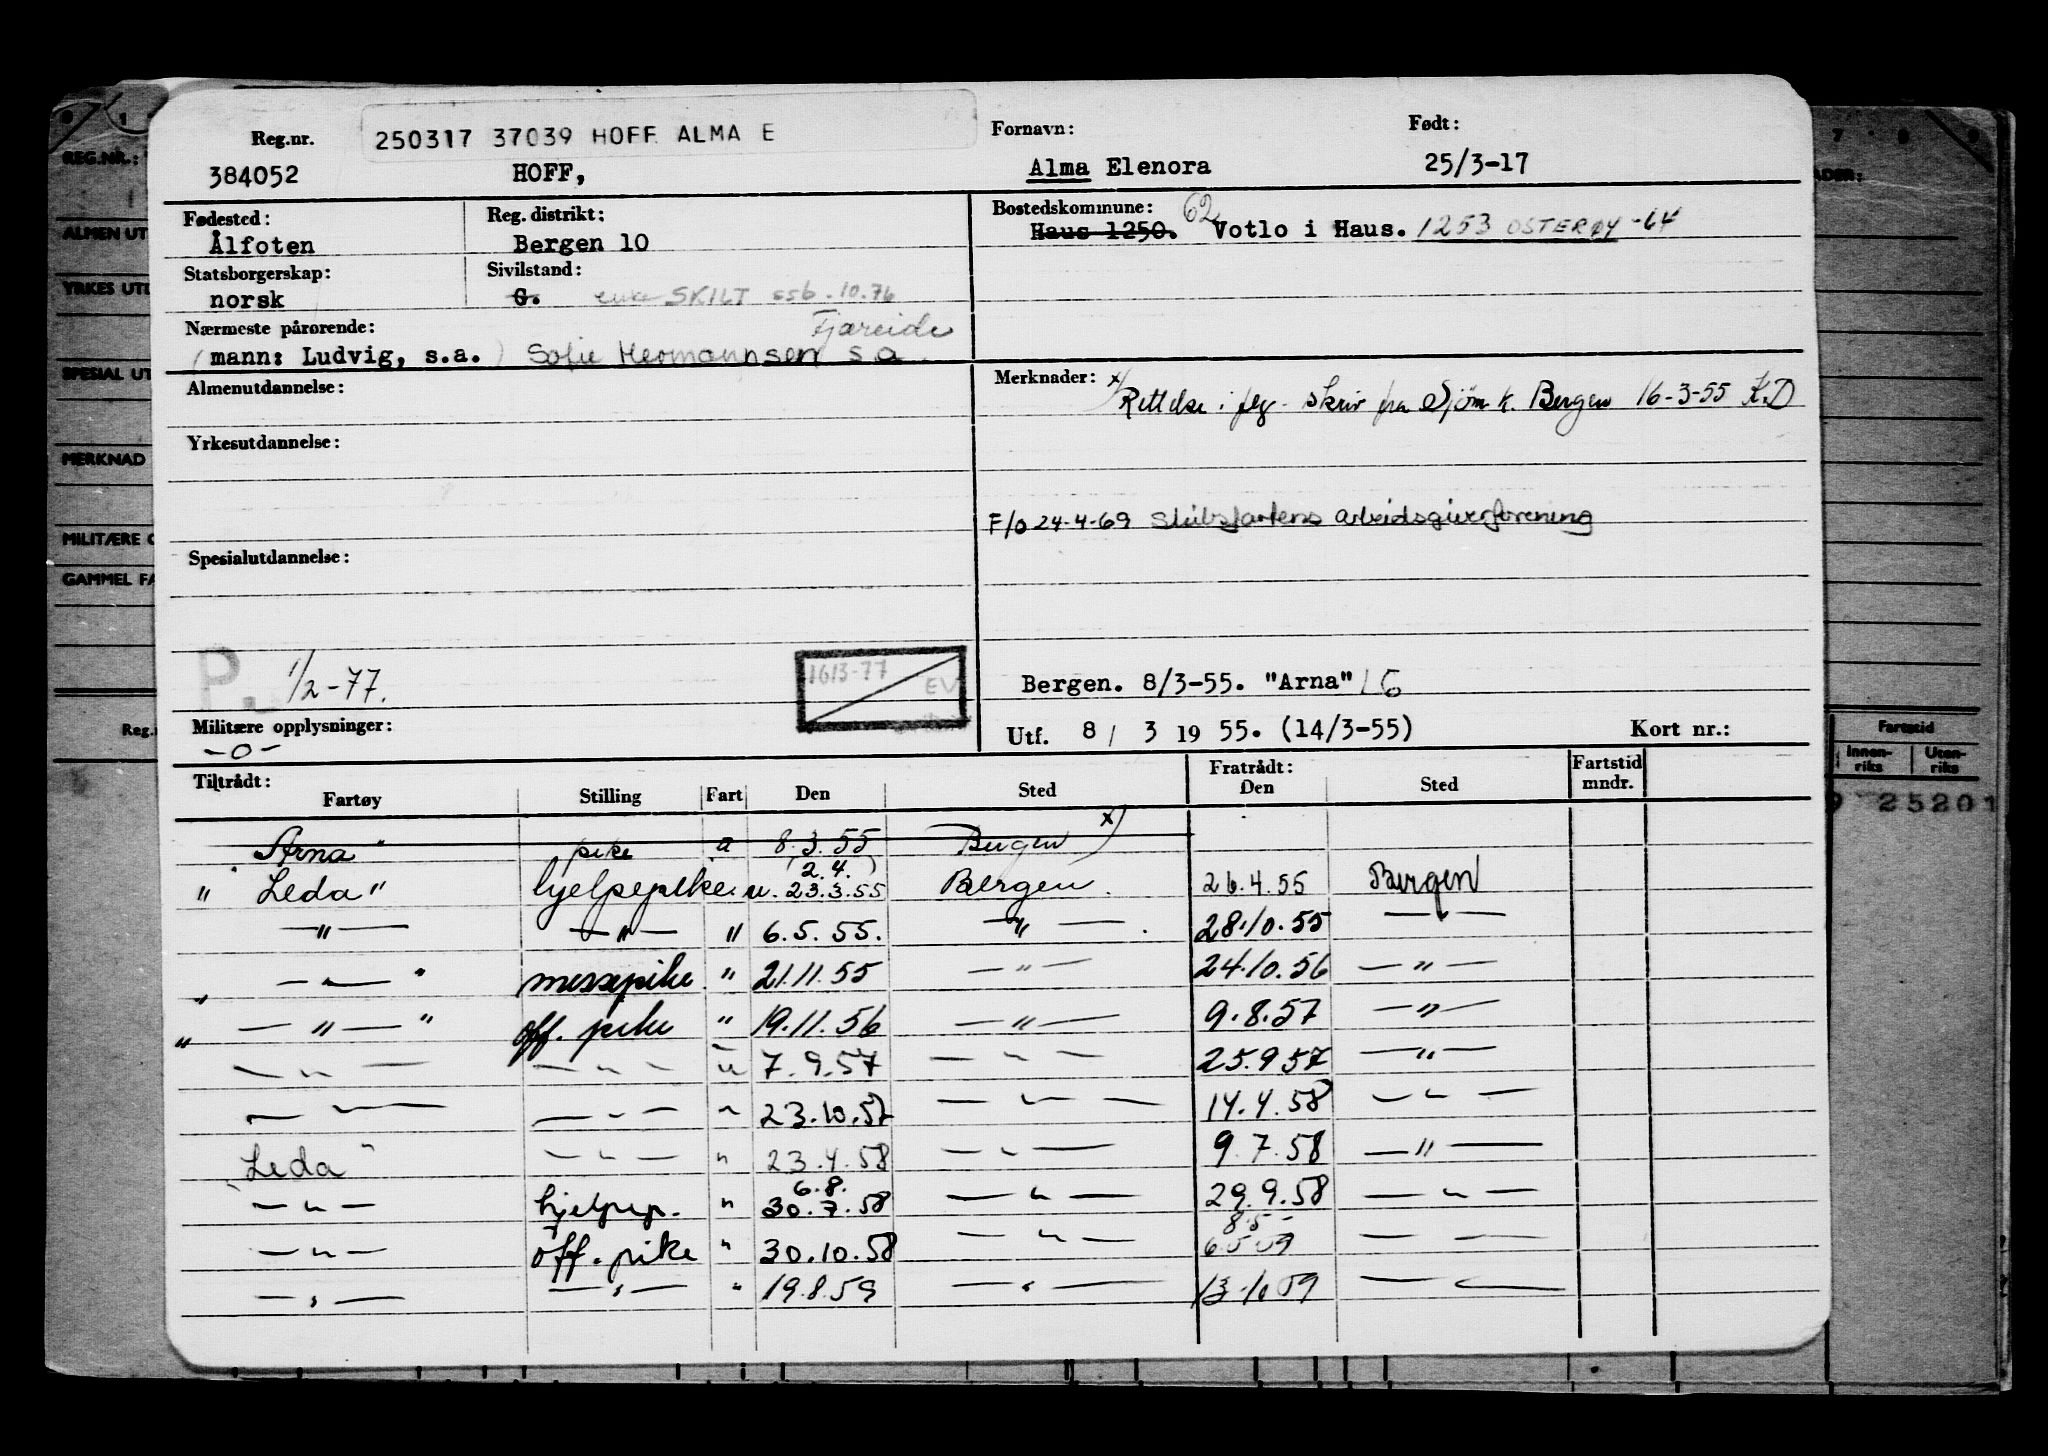 Reg.nr. 250317 37039 HOFF ALMA E Fornavn: Født:
384052 HOFF, Alma Elenora 25/3-17
Fødested: Reg. distrikt: Bostedskommune: 62
Ålfoten Bergen 10 Haus 1250. Votlo i Haus. 1253 OSTERØY -64
Statsborgerskap: Sivilstand:
norsk G. enke SKILT ssb. 10.76
Nærmeste pårørende: Fjæreide
(mann: Ludvig, s.a.) Sofie Hermannsen s a.
Almenutdannelse: Merknader: x) Rettelse i flg. skriv fra Sjøm k. Bergen 16-3-55 K.D
Yrkesutdannelse:
F/o 24-4-69 Skibsfartens arbeidsgiverforening
Spesialutdannelse:
P. 1/2-77. 1613-77 EV
Bergen. 8/3-55. "Arna" 16
Militære opplysninger: Utf. 8 / 3 19 55. (14/3-55) Kort nr.:
-0-
Tiltrådt: Fratrådt: Fartstid
Fartøy Stilling Fart Den Sted Den Sted mndr.
"Arna" pike a 8.3.55 Bergen x)
(2.4.)
"Leda" hjelpepike. u. 23.3.55 Bergen. 26.4.55 Bergen
—"— —"— " 6.5.55. —"— 28.10.55 —"—
" —"— " messepike " 21.11.55 —"— 24.10.56 —"—
" —"— " off. pike " 19.11.56 —"— 9.8.57 —"—
—"— —"— u 7.9.57 —"— 25.9.57 —"—
—"— —"— " 23.10.57 —"— 14.4.58 —"—
"Leda" —"— " 23.4.58 —"— 9.7.58 —"—
6.8.
—"— hjelpep. " 30.7.58 —"— 29.9.58 —"—
8.5-
—"— off. pike " 30.10.58 —"— 6.5.59 — —
—"— —"— " 19.8.59 —"— 13-10 59 — —
REG.NR.:
ALMEN UT
YRKES UT
SPESIAL UT
MERKNAD
MILITÆRE O
GAMMEL FA
Reg.
7 8 9
ADER:
Fartstid
Innen-riks Uten-riks
9 25201